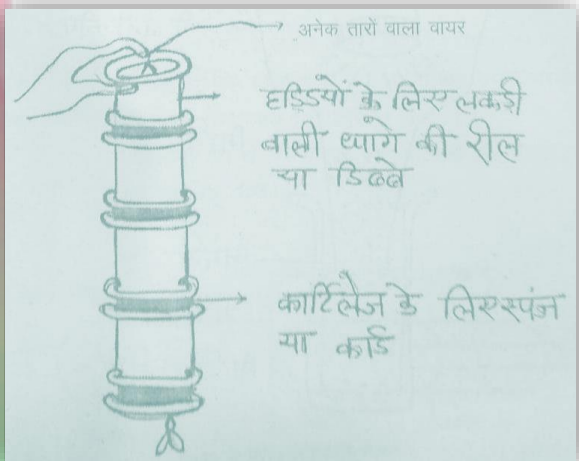 अनेक तारों वाला वायर
हड्डियों के लिए लकड़ी
वाली धागे की रील
या डिब्बे
कार्टिलेज के लिए स्पंज
या कार्ड